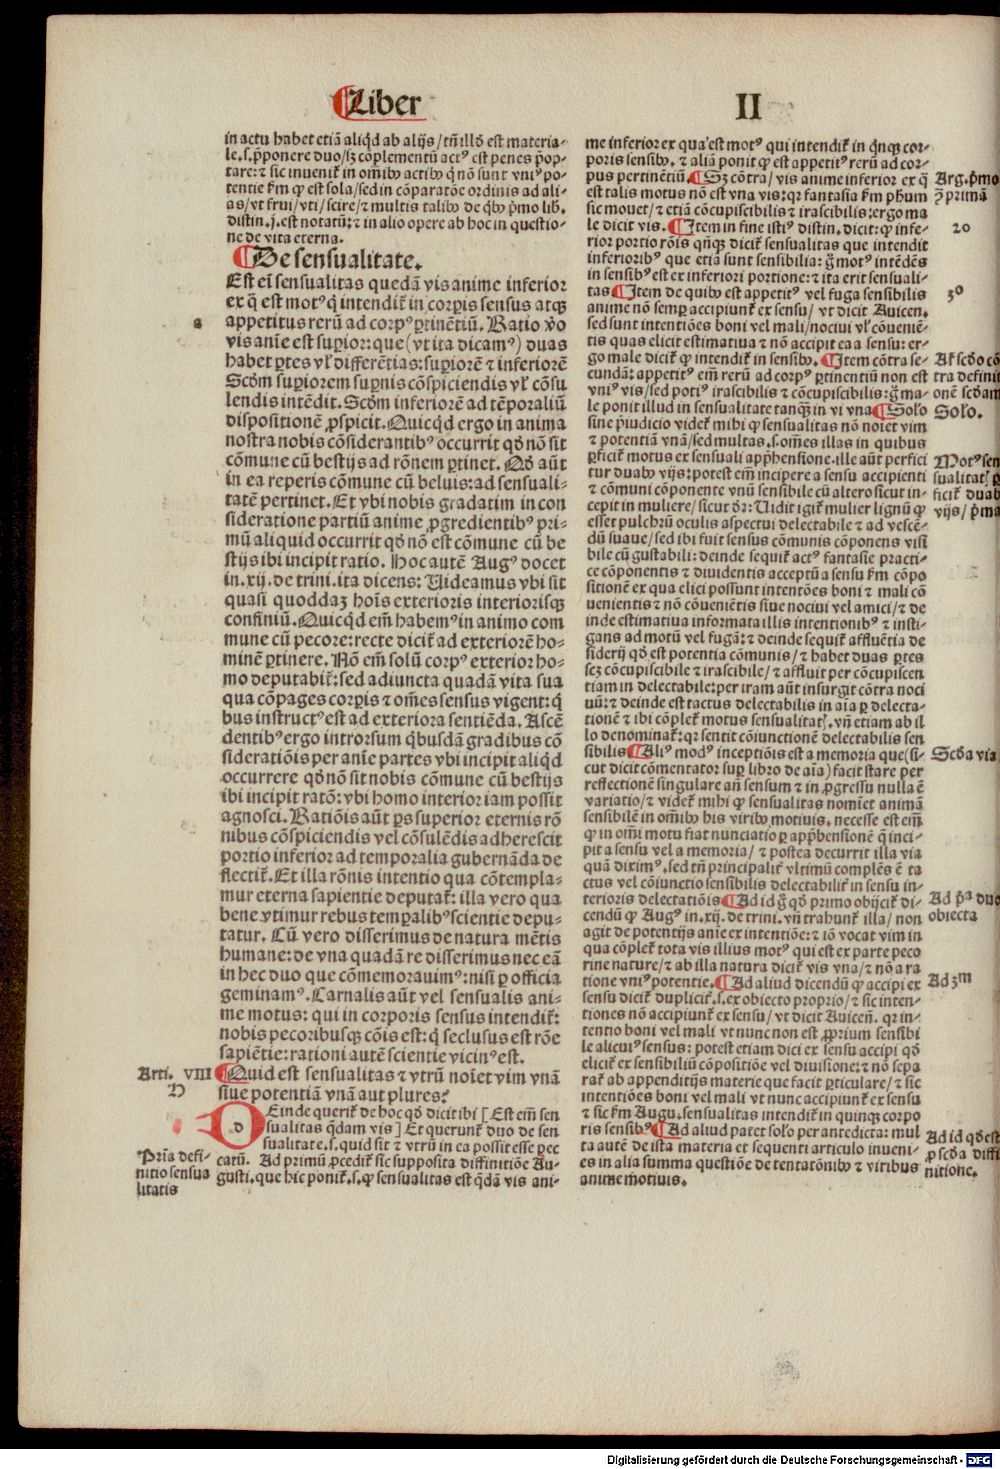 ¶Liber
II
in actu habet etiã aliq̃d ab alijs/tñ illđ est materia⸗
le.s.p̃ponere duo/sꝫ cõplementũ actꝰ est penes p̃op⸗
tare: ⁊ sic inuenit̃ in om̃ibꝰ actibꝰ q̃ nõ sunt vniꝰ po⸗
tentie scd̃m ꝙ est sola/sed in cõparatõe ordinis ad ali⸗
as/vt frui/vti/scire/⁊ multis talibꝰ de q̃bꝰ p̃mo lib̃.
distin.j.est notatũ: ⁊ in alio opere ab hoc in questio⸗
ne de vita eterna.
¶De sensualitate.
Est ei̇̃ sensualitas quedã vis anime inferior
ex q̃ est motꝰ q̃ intendit̃ in corp̃is sensus atqꝫ
a
appetitus rerũ ad corpꝰ ꝑtinẽtiũ. Ratio v̾o
vis anĩe est supior: que (vt ita dicamꝰ) duas
habet ꝑtes vl̃ differẽtias: supiorẽ ⁊ inferiorẽ
Scd̃m supiorem supnis cõspiciendis vl̃ cõsu
lendis intẽdit. Scd̃m inferiorẽ ad tẽporaliũ
dispositionẽ ꝓspicit. Quicq̃d ergo in anima
nostra nobis cõsiderantibꝰ occurrit qđ nõ sit
cõmune cũ bestijs ad rõnem ꝑtinet. Qđ aũt
in ea reperis cõmune cũ beluis: ad sensuali⸗
tatẽ pertinet. Et vbi nobis gradatim in con
sideratione partiũ anime ꝓgredientibꝰ pri⸗
mũ aliquid occurrit qđ nõ est cõmune cũ be
stijs ibi incipit ratio. Hoc autẽ Augꝰ docet
in.xij.de trini.ita dicens: Uideamus vbi sit
quasi quoddaꝫ hoĩs exterioris interiorisqꝫ
confiniũ. Quicq̃d em̃ habemꝰ in animo com
mune cũ pecore: recte dicit̃ ad exteriorẽ ho⸗
minẽ ꝑtinere. Nõ em̃ solũ corpꝰ exterior ho⸗
mo deputabit̃: sed adiuncta quadã vita sua
qua cõpages corp̃is ⁊ om̃es sensus vigent: q̃
bus instructꝰ est ad exteriora sentiẽda. Ascẽ
dentibꝰ ergo introrsum q̃busdã gradibus cõ
sideratiõis per anĩe partes vbi incipit aliq̃d
occurrere qđ nõ sit nobis cõmune cũ bestijs
ibi incipit ratõ: vbi homo interior iam possit
agnosci. Ratiõis aũt ꝑs superior eternis rõ
nibus cõspiciendis vel cõsulẽdis adherescit
portio inferior ad temporalia gubernãda de
flectit̃. Et illa rõnis intentio qua cõtempla⸗
mur eterna sapientie deputat̃: illa vero qua
bene vtimur rebus temp̃alibꝰ scientie depu⸗
tatur. Cũ vero disserimus de natura mẽtis
humane: de vna quadã re disserimus nec eã
in hec duo que cõmemorauimꝰ: nisi ꝑ officia
geminamꝰ. Carnalis aũt vel sensualis ani⸗
me motus: qui in corporis sensus intendit̃:
nobis pecoribusqꝫ cõis est: q̃ seclusus est rõe
sapiẽtie: rationi autẽ scientie vicinꝰ est.
Arti. VIII
D
¶Quid est sensualitas ⁊ vtrũ noĩet vim vnã
siue potentiã vnã aut plures?
d
Einde querit̃ de hoc qđ dicit ibi [Est em̃ sen
sualitas q̃dam vis] Et querunt̃ duo de sen
sualitate.s.quid sit ⁊ vtrũ in ea possit esse pec
catũ. Ad primũ ꝓcedit̃ sic supposita diffinitiõe Au⸗
gusti.que hic ponit̃.s.ꝙ sensualitas est q̃dã vis ani⸗
Pria defi⸗
nitio sensua
litatis
me inferior ex qua est motꝰ qui intendit̃ in q̃nqꝫ cor⸗
poris sensibꝰ. ⁊ aliã ponit ꝙ est appetitꝰ rerũ ad cor⸗
pus pertinẽtiũ. ¶Sꝫ cõtra/vis anime inferior ex q̃
est talis motus nõ est vna vis: qr fantasia scd̃m ph̃um
sic mouet/⁊ etiã cõcupiscibilis ⁊ irascibilis: ergo ma
le dicit vis. ¶Item in fine istiꝰ distin.dicit: ꝙ infe⸗
rior portio rõis q̃nqꝫ dicit̃ sensualitas que intendit
inferioribꝰ que etiã sunt sensibilia: g̃ motꝰ intẽdẽs
in sensibꝰ est ex inferiori portione: ⁊ ita erit sensuali⸗
tas ¶Item de quibꝰ est appetitꝰ vel fuga sensibilis
anime nõ semꝑ accipiunt̃ ex sensu/vt dicit Auicen.
sed sunt intentiões boni vel mali/nociui vl̃ cõueniẽ⸗
tis quas elicit estimatiua ⁊ nõ accipit ea a sensu: er⸗
go male dicit̃ ꝙ intendit̃ in sensibꝰ. ¶Item cõtra se⸗
cundã: appetitꝰ em̃ rerũ ad corpꝰ ꝑtinentiũ non est
vniꝰ vis/sed potiꝰ irascibilis ⁊ cõcupiscibilis: g̃ ma⸗
le ponit illud in sensualitate tanqꝫ in vi vna ¶Solo
sine p̃iudicio videt̃ mihi ꝙ sensualitas nõ noĩet vim
⁊ potentiã vnã/sed multas.s.om̃es illas in quibus
ꝑficit̃ motus ex sensuali app̃hensione.ille aũt perfici
tur duabꝰ vijs: potest em̃ incipere a sensu accipienti
⁊ cõmuni cõponente vnũ sensibile cũ altero sicut in⸗
cepit in muliere/sicut dr̃: Uidit igit̃ mulier lignũ ꝙ
esset pulchrũ oculis aspectui delectabile ⁊ ad vescẽ⸗
dũ suaue/sed ibi fuit sensus cõmunis cõponens visi
bile cũ gustabili: deinde sequit̃ actꝰ fantasie practi⸗
ce cõponentis ⁊ diuidentis acceptũ a sensu scd̃m cõpo
sitionẽ ex qua elici possunt intentões boni ⁊ mali cõ
uenientis ⁊ nõ cõueniẽtis siue nociui vel amici/⁊ de
inde estimatiua informata illis intentionibꝰ ⁊ insti⸗
gans ad motũ vel fugã: ⁊ deinde sequit̃ affluẽtia de
siderij qđ est potentia cõmunis/⁊ habet duas ꝑtes
scꝫ cõcupiscibile ⁊ irascibile/⁊ affluit per cõcupiscen
tiam in delectabile: per iram aũt insurgit cõtra noci
uũ: ⁊ deinde est tactus delectabilis in aĩa ꝑ delecta⸗
tionẽ ⁊ ibi cõplet̃ motus sensualitatꝭ. vñ etiam ab il
lo denominat̃: qr sentit cõiunctionẽ delectabilis sen
sibilis ¶Aliꝰ modꝰ inceptiõis est a memoria que (si⸗
cut dicit cõmentator sup libro de aĩa) facit stare per
reflectionẽ singulare añ sensum ⁊ in ꝓgressu nulla ẽ
variatio/⁊ videt̃ mihi ꝙ sensualitas nomĩet animã
sensibilẽ in om̃ibꝰ his viribꝰ motiuis. necesse est em̃
ꝙ in om̃i motu fiat nunciatio ꝑ app̃bensionẽ q̃ inci⸗
pit a sensu vel a memoria/⁊ postea decurrit illa via
quã diximꝰ. sed tñ principalit̃ vltimũ complẽs ẽ ta
ctus vel cõiunctio sensibilis delectabilit̃ in sensu in⸗
terioris delectatiõis ¶Ad id g̃ qđ primo obijcit̃ di⸗
cendũ ꝙ Augꝰ in.xij.de trini.vñ trahunt̃ illa/non
agit de potentijs anĩe ex intentiõe: ⁊ iõ vocat vim in
qua cõplet̃ tota vis illius motꝰ qui est ex parte peco
rine nature/⁊ ab illa natura dicit̃ vis vna/⁊ nõ a ra
tione vniꝰ potentie. ¶Ad aliud dicendũ ꝙ accipi ex
sensu dicit̃ duplicit̃.s.ex obiecto proprio/⁊ sic inten⸗
tiones nõ accipiunt̃ ex sensu/vt dicit Auiceñ. qr in⸗
tentio boni vel mali vt nunc non est ꝓprium sensibi
le alicuiꝰ sensus: potest etiam dici ex sensu accipi qđ
elicit̃ ex sensibiliũ cõpositiõe vel diuisione: ⁊ nõ sepa
rat̃ ab appenditijs materie que facit ꝑticulare/⁊ sic
intentiões boni vel mali vt nunc accipiunt̃ ex sensu
⁊ sic scd̃m Augu.sensualitas intendit̃ in quinqꝫ corpo
ris sensibꝰ ¶Ad aliud patet solo per antedicta: mul
ta autẽ de ista materia et sequenti articulo inueni⸗
es in alia summa questiõe de tentatõnibꝰ ⁊ viribus
anime motiuis.
Arg. p̃mo
ꝯ̃ primã
20
3º
Arł scđo cõ
tra definit
onẽ scđam
Solo.
Motꝰ sen
sualitatꝭ ꝑ
ficit̃ duab
vijs/p̃ma
Scđa via
Ad p̃a duo
obiecta
Ad 3m
Ad id qđ est
ꝓ scđa diffi
nitione.
Digitalisierung gefördert durch die Deutsche Forschungsgemeinschaft - DFG